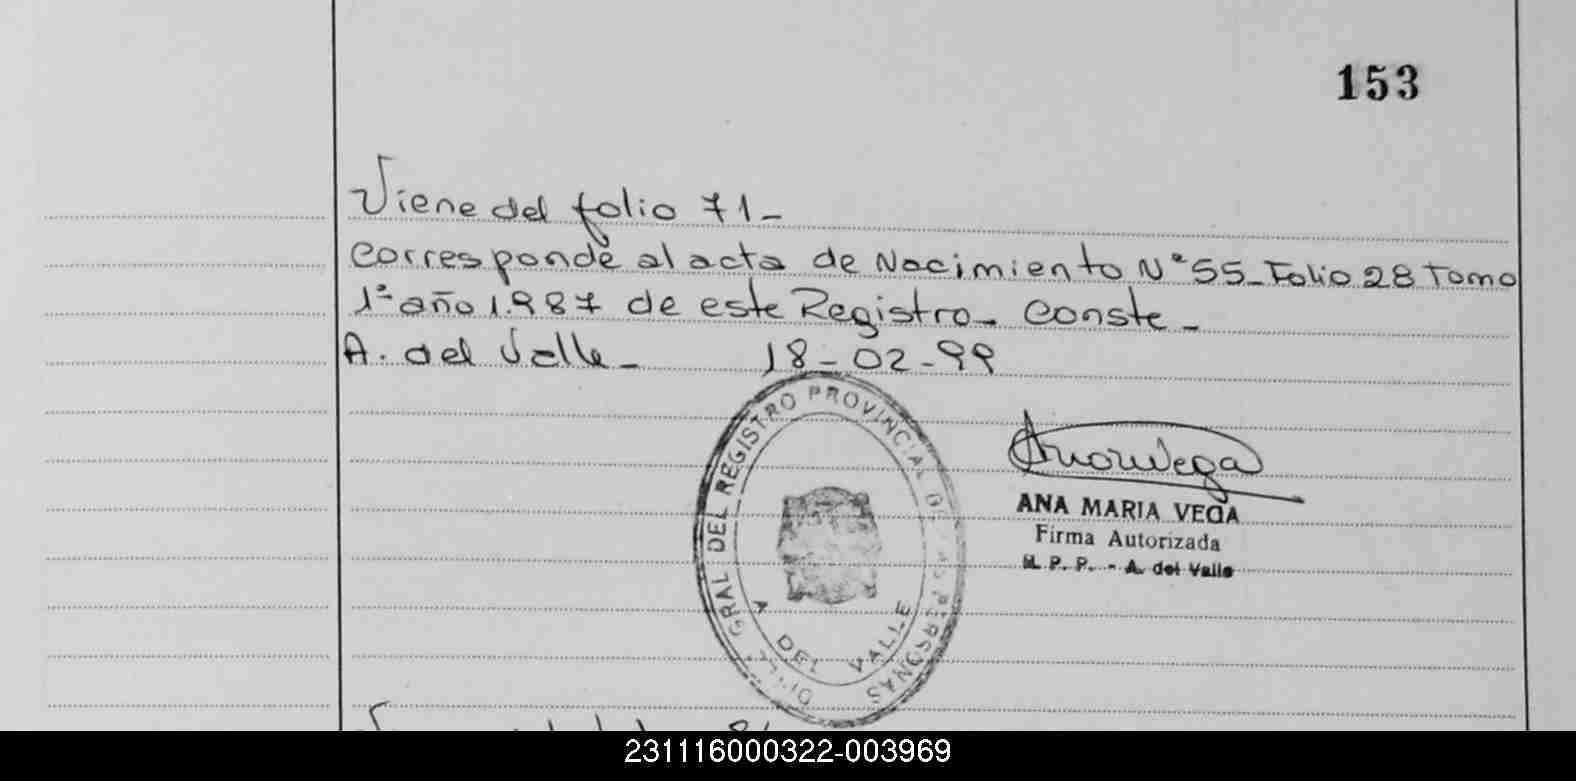 153
Viene del folio 71-
Corresponde al acta de Nacimiento N° 55- Folio 28 Tomo
1° año 1.987 de este Registro- Conste-
A. del Valle- 18-02-99
GRAL DEL REGISTRO PROVINCIAL DE LAS PERSONAS
A DEL VALLE
Vega
ANA MARIA VEGA
Firma Autorizada
M. P. P. - A. del Valle
231116000322-003969